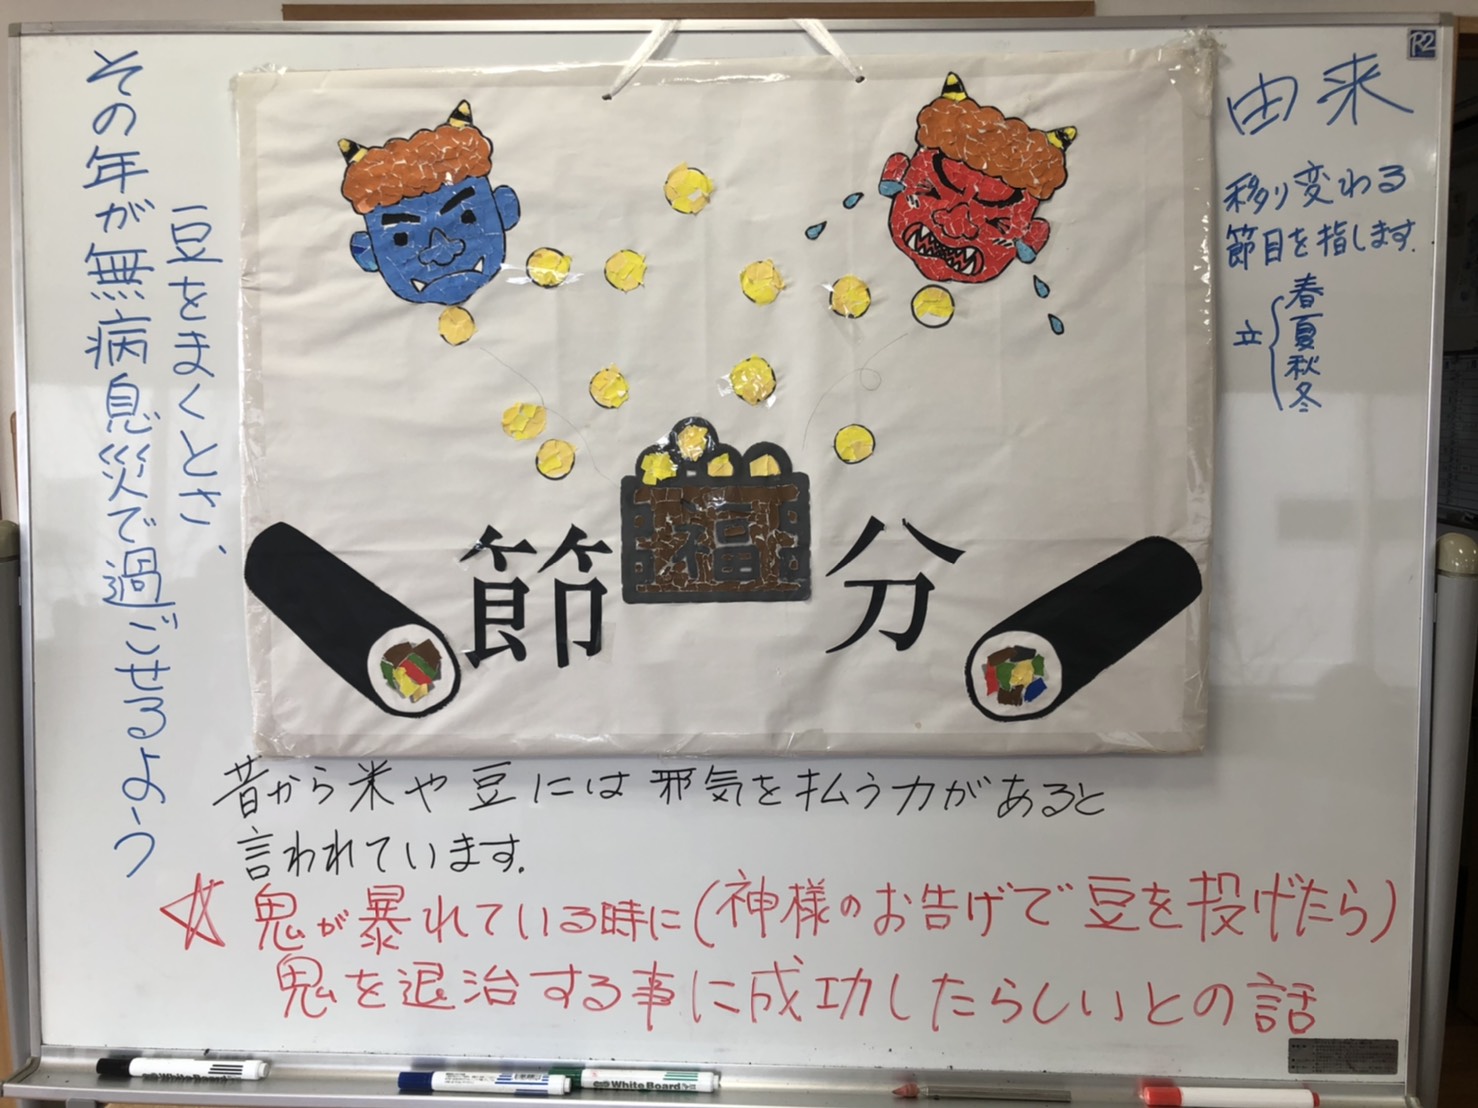 R2
由来
移り変わる
節目を指します.
立{春夏秋冬
豆をまくとさ、
その年が無病息災で過ごせるよう
福
節分
昔から米や豆には邪気を払う力があると
言われています.
☆鬼が暴れている時に(神様のお告げで豆を投げたら)
鬼を退治する事に成功したらしいとの話
WhiteBoard
WhiteBoard